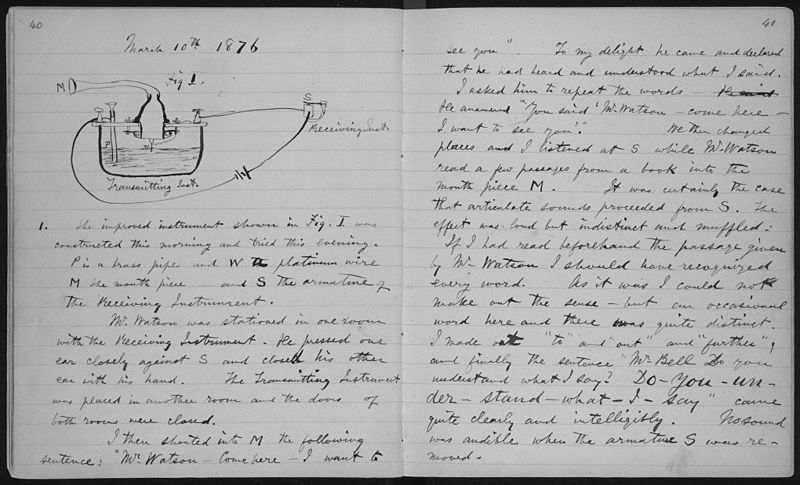 40
March 10th 1876
Fig 1.
M
S
Receiving Inst.
P
W
Transmitting Inst.
1. The improved instrument shown in Fig. I was
constructed this morning and tried this evening.
P is a brass pipe and W the platinum wire
M the mouth piece — and S the armature of
the Receiving Instrument.
Mr. Watson was stationed in one room
with the Receiving Instrument. He pressed one
ear closely against S and closed his other
ear with his hand. The Transmitting Instrument
was placed in another room and the doors of
both rooms were closed.
I then shouted into M the following
sentence: "Mr. Watson — Come here — I want to
41
see you". To my delight he came and declared
that he had heard and understood what I said.
I asked him to repeat the words —
He answered "You said 'Mr. Watson — come here —
I want to see you'." We then changed
places and I listened at S while Mr. Watson
read a few passages from a book into the
mouth piece M. It was certainly the case
that articulate sounds proceeded from S. The
effect was loud but indistinct and muffled.
If I had read beforehand the passage given
by Mr. Watson I should have recognized
every word. As it was I could not
make out the sense — but an occasional
word here and there was quite distinct.
I made out "to" and "out" and "further";
and finally the sentence "Mr. Bell Do you
understand what I say? Do-you-un-
der-stand-what-I-say" came
quite clearly and intelligibly. No sound
was audible when the armature S was re-
moved.